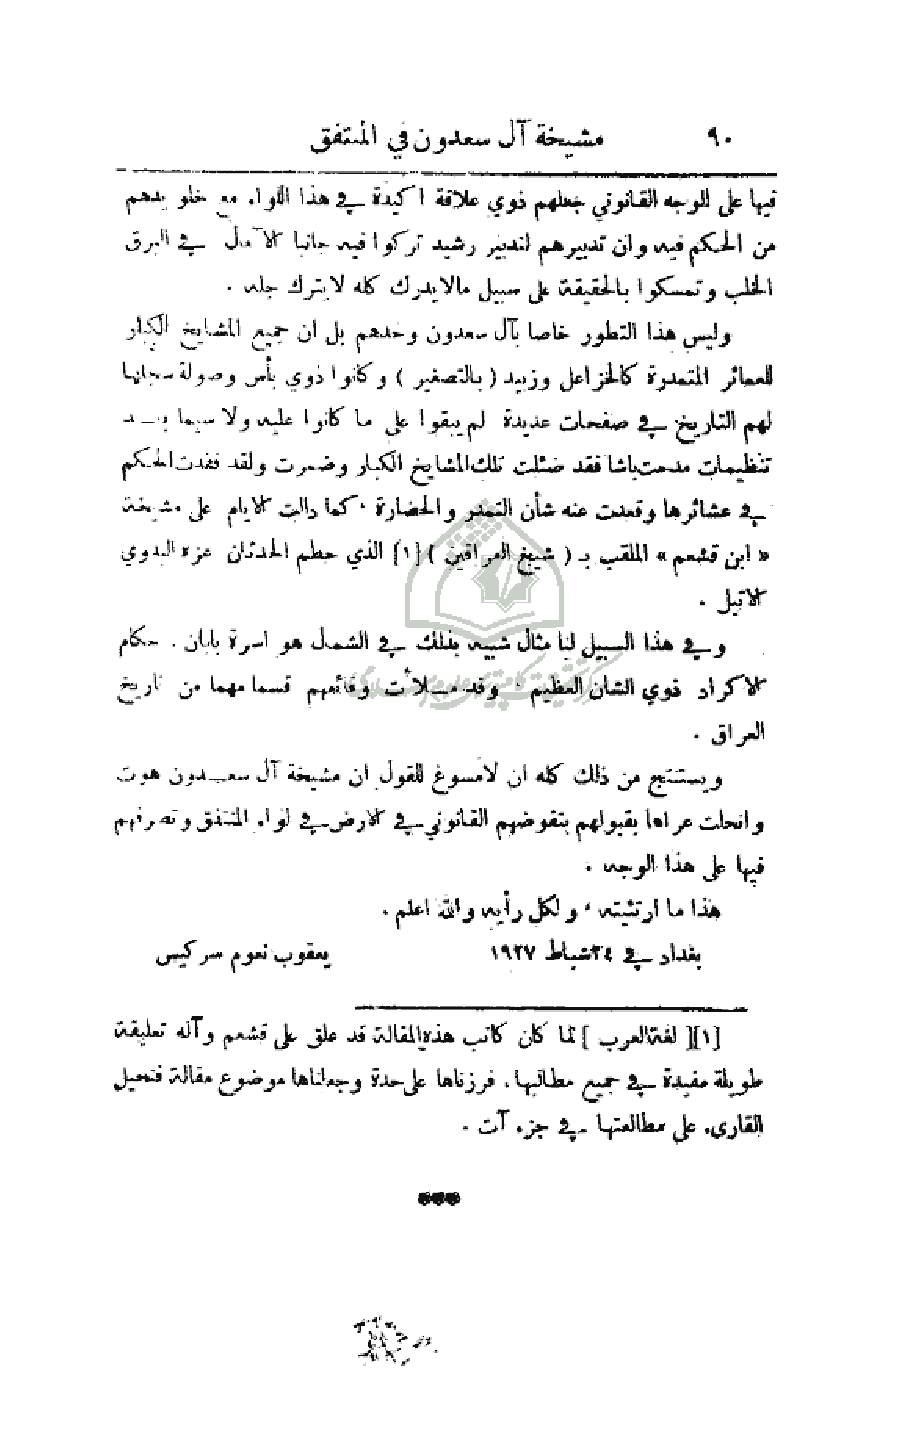 ٩٠ مشيخة آل سعدون في المنتفق
فيها على الوجه القانوني جعلهم ذوي علاقة اكيدة في هذا اللواء مع خلو يدهم
من الحكم فيه وان تدبيرهم لتدبير رشيد تركوا فيه جانبا الآمال في البرق
الخلب وتمسكوا بالحقيقة على سبيل مالايدرك كله لايترك جله .
وليس هذا التطور خاصا بآل سعدون وحدهم بل ان جميع المشايخ الكبار
للعمائر المتمدرة كالخزاعل وزبيد ( بالتصغير ) وكانوا ذوي بأس وصولة سجلها
لهم التاريخ في صفحات عديدة لم يبقوا على ما كانوا عليه ولا سيما بعد
تنظيمات مدحت باشا فقد ضئلت تلك المشايخ الكبار وضمرت ولقد فقدت الحكم
في عشائرها وقعدت عنه شأن التمدن والحضارة ٠ كما دالت الايام على مشيخة
« ابن قشعم » الملقب بـ ( شيخ العراقين ) [١] الذي حطم الحدثان عزه البدوي
الاثيل .
وفي هذا السبيل لنا مثال شبيه بذلك في الشمال هو اسرة بابان . حكام
الاكراد ذوي الشان العظيم ٠ وقد مـلأت وقائعهم قسما مهما من تاريخ
العراق .
ويستنتج من ذلك كله ان لامسوغ للقول ان مشيخة آل سعـدون هوت
وانحلت عراها بقبولهم بتفوضهم القانوني في الارض في لواء المنتفق وتصرفهم
فيها على هذا الوجه .
هذا ما ارتئيته ٠ ولكل رأيه والله اعلم .
بغداد في ٢٤ شباط ١٩٢٧ يعقوب نعوم سركيس
[١][ لغة العرب ] لما كان كاتب هذه المقالة قد علق على قشعم وآله تعليقة
طويلة مفيدة في جميع مطاليها . فرزناها على حدة وجعلناها موضوع مقالة فنحيل
القارىء على مطالعتها في جزء آت .